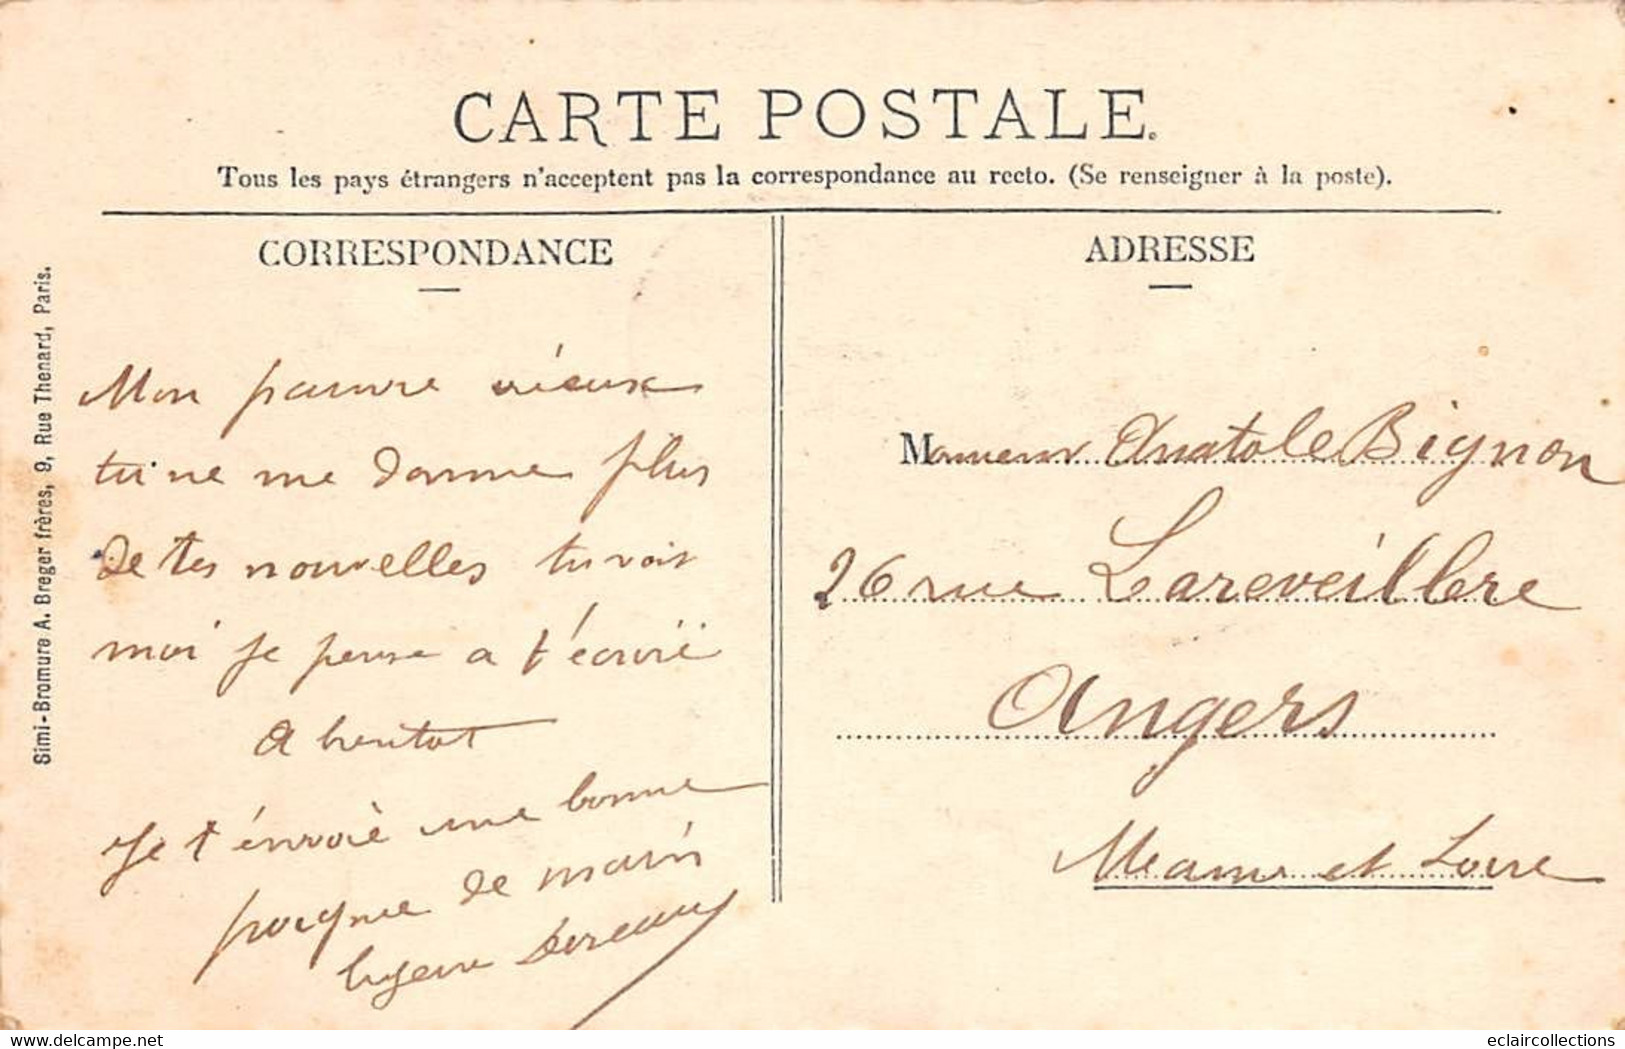 CARTE POSTALE.
Tous les pays étrangers n'acceptent pas la correspondance au recto. (Se renseigner à la poste).
CORRESPONDANCE
Mon pauvre viéeux
tu ne me donne plus
de tes nouvelles tu vois
moi je pense a t'écrire
A bientot
Je t'énvoiè une bonne
poignee de main
Eugene
ADRESSE
Monsieur Anatole Bignon
26 rue Lareveillere
Angers
Maine et Loire
Simi-Bromure A. Breger frères, 9, Rue Thenard, Paris.
delcampe.net
eclaircollections